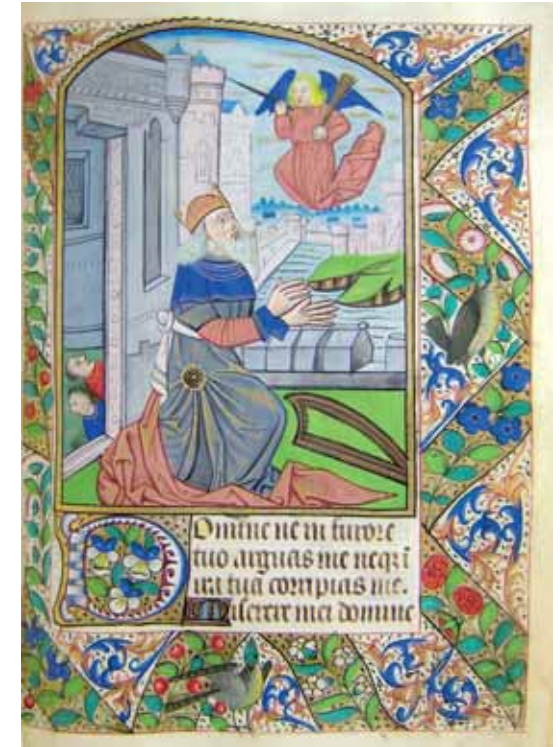 Domine ne in furore
tuo arguas me neqȝ ī
ira tua corripias me.
Miserere mei domine